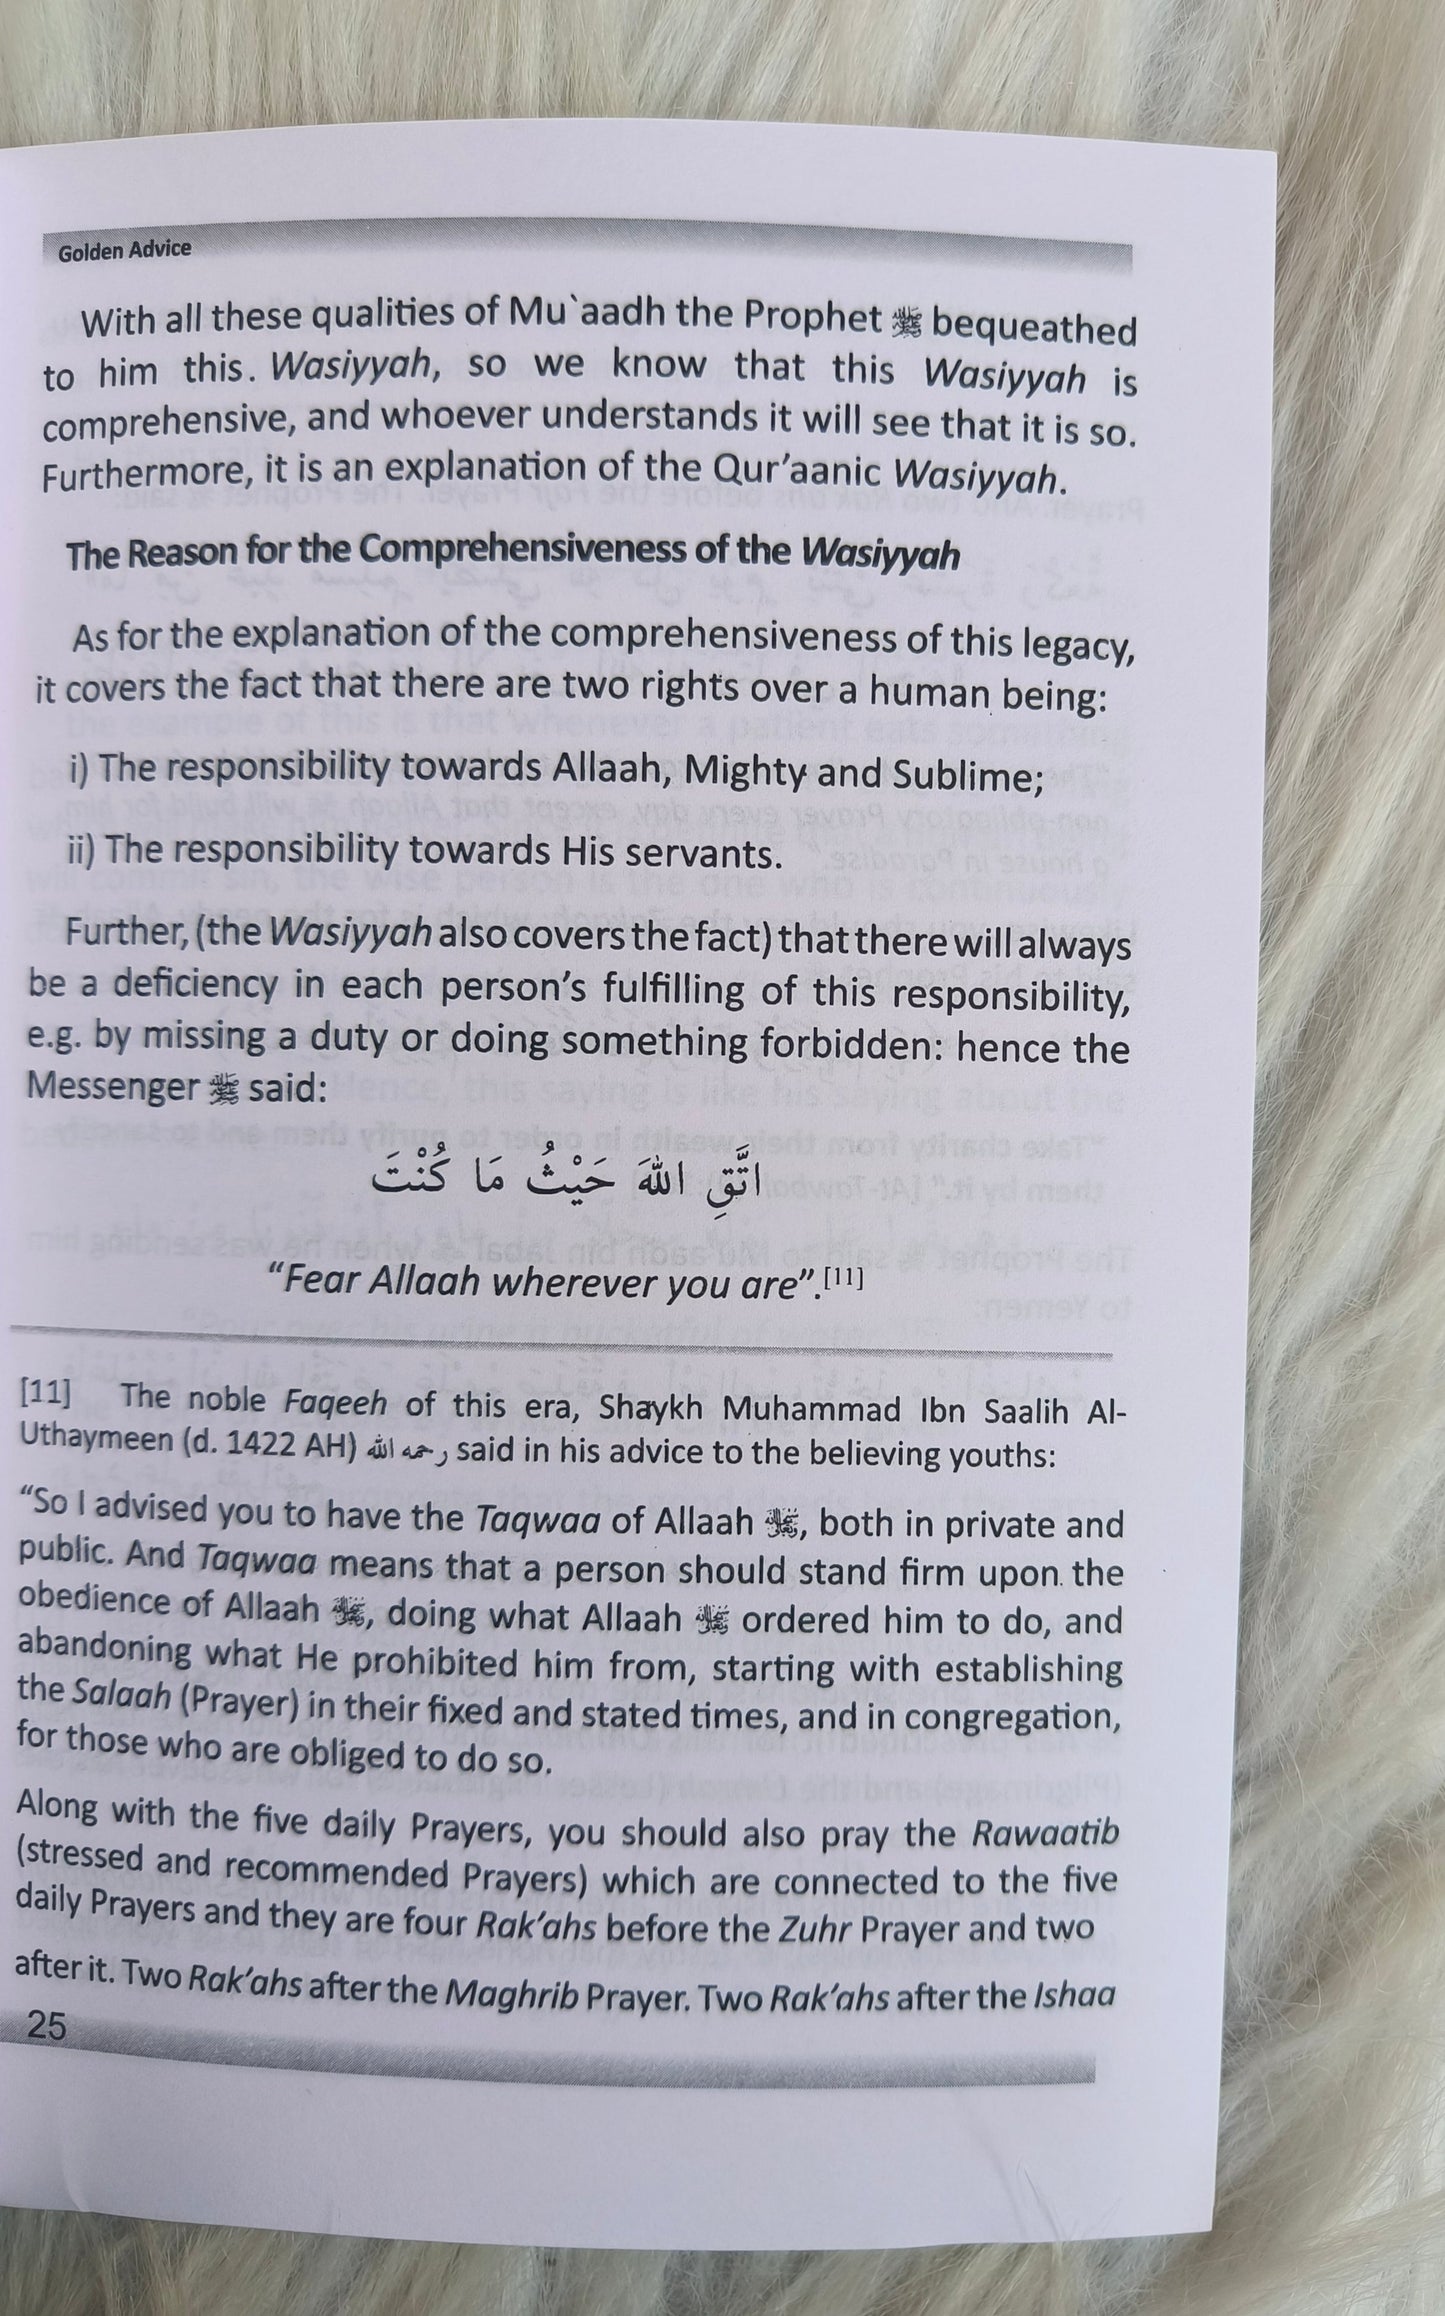 Golden Advice
With all these qualities of Mu`aadh the Prophet ﷺ bequeathed
to him this. Wasiyyah, so we know that this Wasiyyah is
comprehensive, and whoever understands it will see that it is so.
Furthermore, it is an explanation of the Qur’aanic Wasiyyah.
The Reason for the Comprehensiveness of the Wasiyyah
As for the explanation of the comprehensiveness of this legacy,
it covers the fact that there are two rights over a human being:
i) The responsibility towards Allaah, Mighty and Sublime;
ii) The responsibility towards His servants.
Further, (the Wasiyyah also covers the fact) that there will always
be a deficiency in each person’s fulfilling of this responsibility,
e.g. by missing a duty or doing something forbidden: hence the
Messenger ﷺ said:
اتَّقِ اللهَ حَيْثُ مَا كُنْتَ
“Fear Allaah wherever you are”.[11]
[11] The noble Faqeeh of this era, Shaykh Muhammad Ibn Saalih Al-
Uthaymeen (d. 1422 AH) رحمه الله said in his advice to the believing youths:
“So I advised you to have the Taqwaa of Allaah , both in private and
public. And Taqwaa means that a person should stand firm upon the
obedience of Allaah , doing what Allaah ordered him to do, and
abandoning what He prohibited him from, starting with establishing
the Salaah (Prayer) in their fixed and stated times, and in congregation,
for those who are obliged to do so.
Along with the five daily Prayers, you should also pray the Rawaatib
(stressed and recommended Prayers) which are connected to the five
daily Prayers and they are four Rak’ahs before the Zuhr Prayer and two
after it. Two Rak’ahs after the Maghrib Prayer. Two Rak’ahs after the Ishaa
25